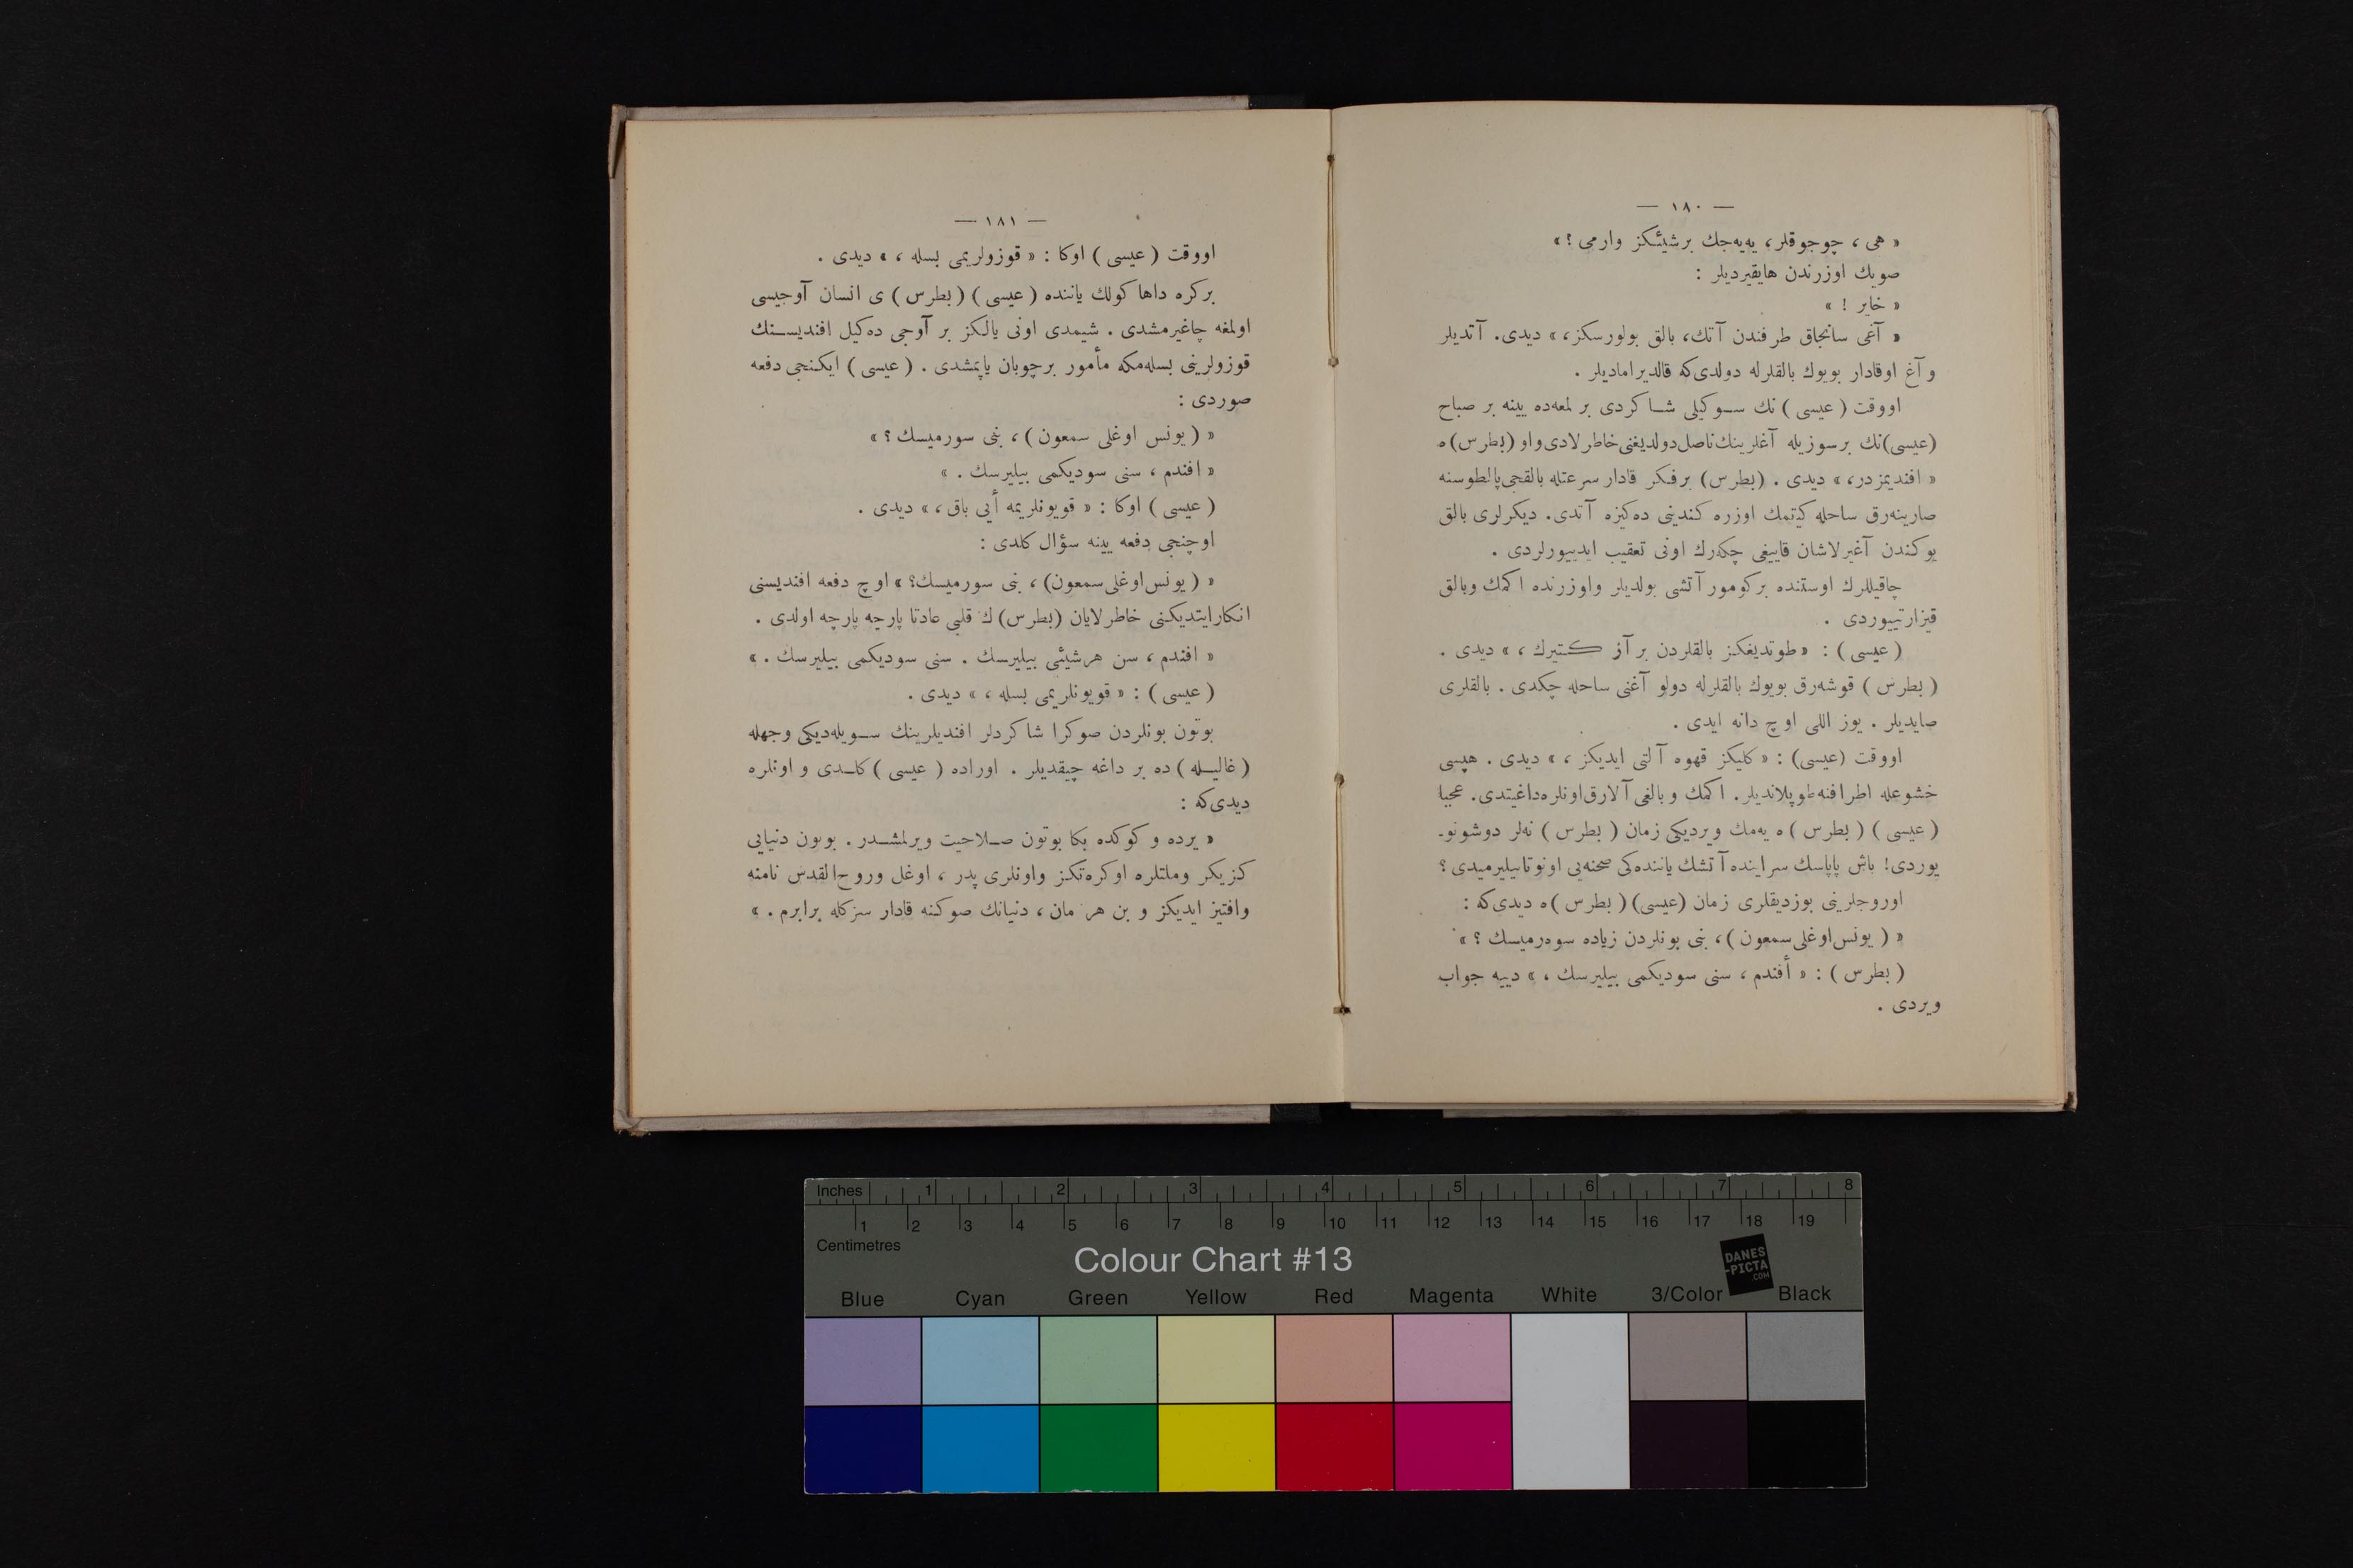 — ١٨٠ —
« هی ، چوجوقلر، یه‌یه‌جك برشیئكز وارمی ؟ »
صویك اوزرندن هایقیردیلر :
« خایر ! »
« آغی سانجاق طرفندن آتك، بالق بولورسكز، » دیدی. آتدیلر
و آغ اوقادار بویوك بالقلرله دولدی‌كه قالدیرامادیلر .
اووقت ( عیسی ) نك سـوكیلی شـاكردی بر لمعه‌ده یینه بر صباح
(عیسی)نك برسوزیله آغلرینك‌ناصل‌دولدیغنی‌خاطرلادی‌واو (بطرس)ه
« افندیمزدر، » دیدی . (بطرس) برفـكر قادار سرعتله بالقجی‌پالطوسنه
صارینه‌رق ساحله كیتمك اوزره كندینی ده‌كیزه آتدی. دیكرلری بالق
یوكندن آغیرلاشان قاییغی چكه‌رك اونی تعقیب ایدییورلردی .
چاقیللرك اوستنده بركومور آتشی بولدیلر واوزرنده اكمك وبالق
قیزارتییوردی .
( عیسی ) : « طوتدیغكز بالقلردن بر آز كـتیرك ، » دیدی .
( بطرس ) قوشه‌رق بویوك بالقلرله دولو آغنی ساحله چكدی . بالقلری
صایدیلر . یوز اللی اوچ دانه ایدی .
اووقت (عیسی) : « كلیكز قهوه آلتی ایدیكز ، » دیدی . هپسی
خشوعله اطرافنه‌طوپلاندیلر. اكمك وبالغی آلارق‌اونلره‌داغیتدی. عجبا
( عیسی ) ( بطرس ) ه یه‌مك ویردیكی زمان ( بطرس ) نه‌لر دوشونو-
یوردی! باش پاپاسك سراینده آتشك یاننده‌كی صحنه‌یی اونوتابیلیرمیدی ؟
اوروجلرینی بوزدیقلری زمان (عیسی) ( بطرس )ه دیدی‌كه :
« ( یونس‌اوغلی‌سمعون )، بنی بونلردن زیاده سوه‌رمیسك ؟ »
( بطرس ) : « أفندم ، سنی سودیكمی بیلیرسك ، » دییه جواب
ویردی .
— ١٨١ —
اووقت ( عیسی ) اوكا : « قوزولریمی بسله ، » دیدی .
بركره داها كولك یاننده ( عیسی ) ( بطرس ) ی انسان آوجیسی
اولمغه چاغیرمشدی . شیمدی اونی یالكز بر آوجی ده‌كیل افندیسـنك
قوزولرینی بسله‌مكه مأمور برچوبان یاپمشدی . ( عیسی ) ایكنجی دفعه
صوردی :
« ( یونس اوغلی سمعون ) ، بنی سورمیسك ؟ »
« افندم ، سنی سودیكمی بیلیرسك . »
( عیسی ) اوكا : « قویونلریمه أیی باق ، » دیدی .
اوچنجی دفعه یینه سؤال كلدی :
« ( یونس‌اوغلی‌سمعون) ، بنی سورمیسك؟ » اوچ دفعه افندیسنی
انكارایتدیكنی خاطرلایان (بطرس)ك قلبی عادتا پارچه پارچه اولدی .
« افندم ، سن هرشیئی بیلیرسك . سنی سودیكمی بیلیرسك . »
( عیسی ) : « قویونلریمی بسله ، » دیدی .
بوتون بونلردن صوكرا شاكردلر افندیلرینك سـویله‌دیكی وجهله
( غالیـله ) ده بر داغه چیقدیلر . اوراده ( عیسی ) كلـدی و اونلره
دیدی‌كه :
« یرده و كوكده بكا بوتون صـلاحیت ویرلمشـدر . بوتون دنیایی
كزیكز وملتلره اوكره‌تكز واونلری پدر ، اوغل وروح‌القدس نامنه
وافتیز ایدیكز و بن هر مان ، دنیانك صوكنه قادار سزكله برابرم . »
Inches 1 2 3 4 5 6 7 8
1 2 3 4 5 6 7 8 9 10 11 12 13 14 15 16 17 18 19
Centimetres
Colour Chart #13
DANES
-PICTA
.COM
Blue Cyan Green Yellow Red Magenta White 3/Color Black